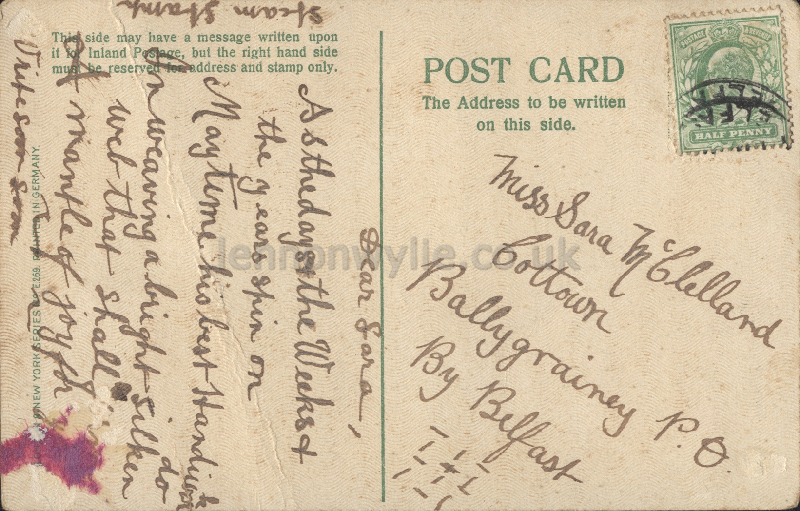 This side may have a message written upon
it for Inland Postage, but the right hand side
must be reserved for address and stamp only.
POST CARD
The Address to be written
on this side.
HALF PENNY
Dear Sara,
As the days & the Weeks &
the years spin on
May time his best Handiwork do
In weaving a bright silken
web that shall
A mantle of joy for
Write soon
Steam Stamp
Miss Sara McClelland
Cottown
Ballygrainey P.O.
By Belfast
NEW YORK SERIES
PRINTED IN GERMANY.
lennonwylie.co.uk